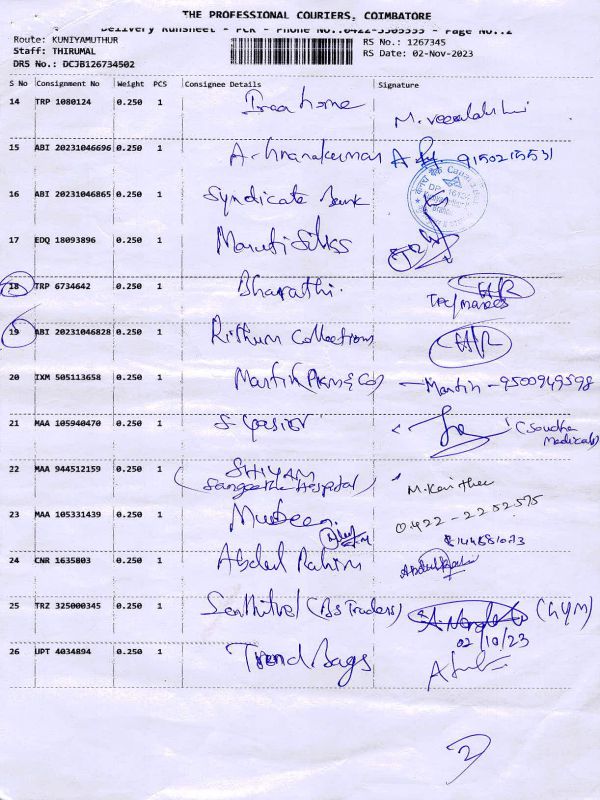 THE PROFESSIONAL COURIERS, COIMBATORE
Delivery Runsheet - PCR - Phone No.:0422-3505555 - Page No.:2
Route: KUNIYAMUTHUR
RS No.: 1267345
Staff: THIRUMAL
RS Date: 02-Nov-2023
DRS No.: DCJB126734502
S No Consignment No Weight PCS Consignee Details Signature
14 TRP 1080124 0.250 1 home M. veeralakshmi
15 ABI 20231046696 0.250 1 A. 9150215531
16 ABI 20231046865 0.250 1 Syndicate Bank
17 EDQ 18093896 0.250 1 Maruti Silks
18 TRP 6734642 0.250 1 Bharathi.
19 ABI 20231046828 0.250 1 Rithum Collections
20 IXM 505113658 0.250 1 Martin (PKM & Co) - Martin - 9500949598
21 MAA 105940470 0.250 1 (Soudha
Medicals)
22 MAA 944512159 0.250 1 SHIYAM
(Sangeetha Hospital) M. Kavitha
23 MAA 105331439 0.250 1 Mubeen. 0422-2252575
24 CNR 1635803 0.250 1 Abdul Rahim Abdul
25 TRZ 325000345 0.250 1 Senthilvel (BS Traders) (GYM)
02/10/23
26 UPT 4034894 0.250 1 Trend Bags